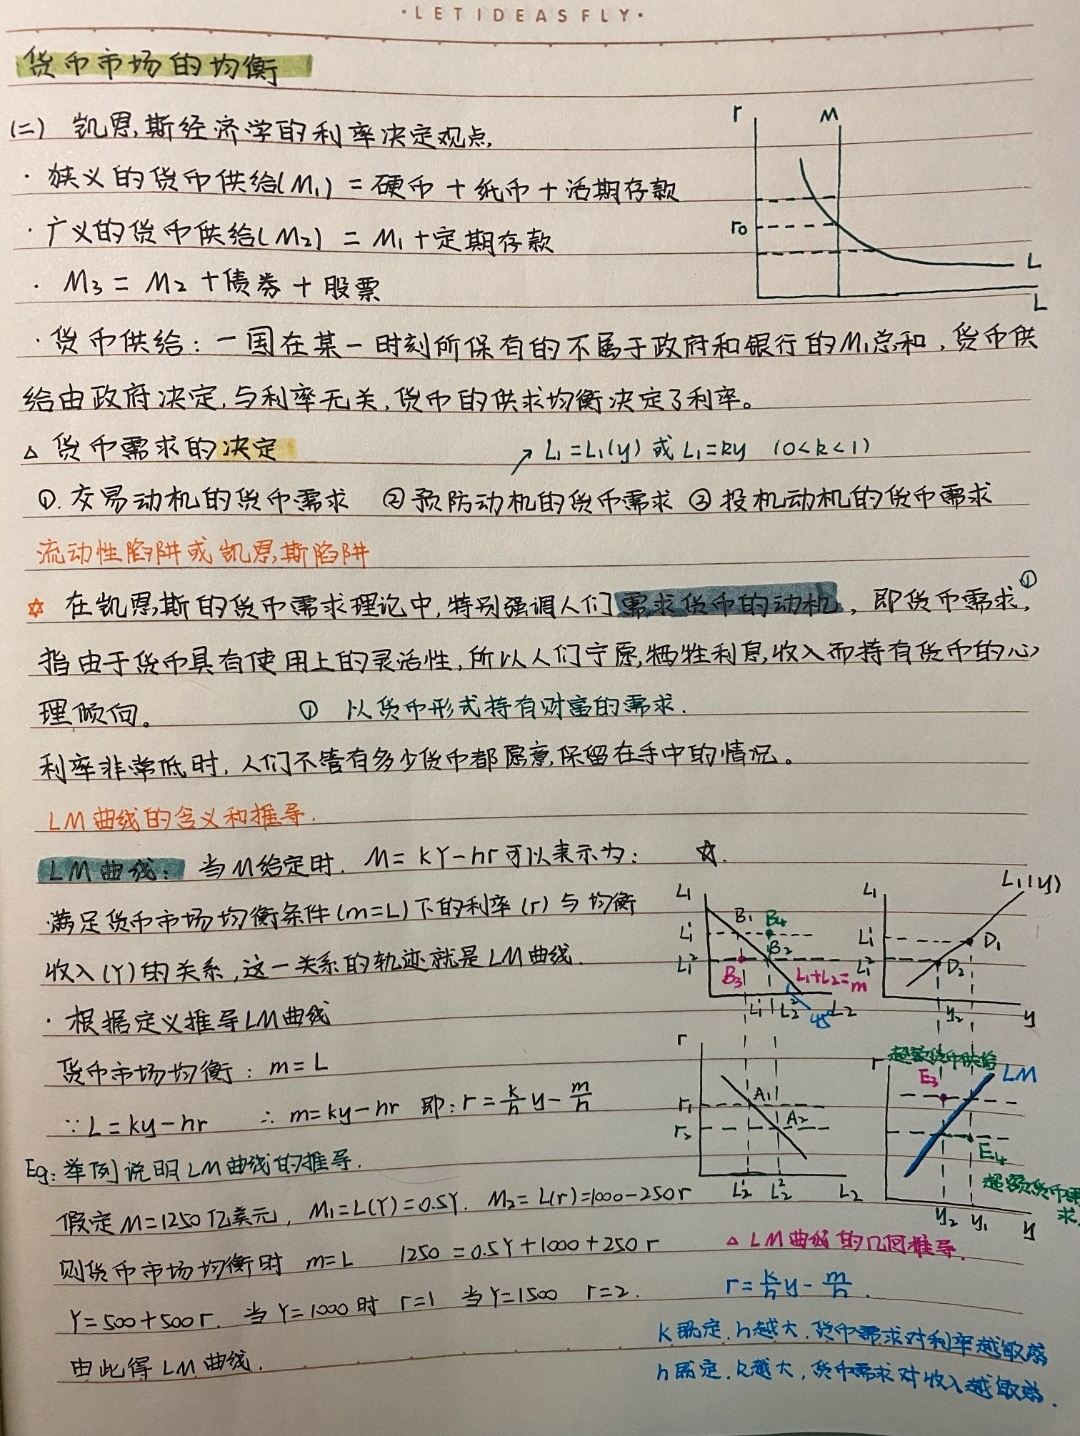 ·LETIDEASFLY·
货币市场的均衡
(二) 凯恩斯经济学的利率决定观点,
· 狭义的货币供给(M₁) = 硬币 + 纸币 + 活期存款
· 广义的货币供给(M₂) = M₁ + 定期存款
· M₃ = M₂ + 债券 + 股票
r M
r₀
L
L
· 货币供给：一国在某一时刻所保有的不属于政府和银行的M₁总和，货币供
给由政府决定,与利率无关,货币的供求均衡决定了利率。
△ 货币需求的决定
↗ L₁=L₁(y) 或 L₁=ky (0<k<1)
①. 交易动机的货币需求 ②预防动机的货币需求 ③投机动机的货币需求
流动性陷阱或凯恩斯陷阱
☆ 在凯恩斯的货币需求理论中,特别强调人们需求货币的动机，即货币需求①,
指由于货币具有使用上的灵活性,所以人们宁愿牺牲利息收入而持有货币的心
理倾向。 ① 以货币形式持有财富的需求.
利率非常低时,人们不管有多少货币都愿意保留在手中的情况。
LM曲线的含义和推导.
LM曲线: 当M给定时, M=kY-hr可以表示为: ☆.
满足货币市场均衡条件(m=L)下的利率(r)与均衡
收入(Y)的关系,这一关系的轨迹就是LM曲线.
· 根据定义推导LM曲线
货币市场均衡: m=L
∵ L=ky-hr ∴ m=ky-hr 即: r=k/h y - m/h
Eg: 举例说明LM曲线的推导.
假定M=1250亿美元, M₁=L(Y)=0.5Y. M₂=L(r)=1000-250r
则货币市场均衡时 m=L 1250=0.5Y+1000+250r
Y=500+500r. 当Y=1000时 r=1 当Y=1500 r=2.
由此得LM曲线.
L₁ B₁ B₄
L₁¹ B₂
L₁² B₃ L₁+L₂=m
L₂¹ L₂² 45° L₂
L₁ L₁(y)
L₁¹ D₁
L₁² D₂
y₂ y₁ y
r
r₁ A₁
r₂ A₂
L₂¹ L₂² L₂
r 超额货币供给
E₃ LM
E₄
超额货币需
求.
y₂ y₁ y
△ LM曲线的几何推导.
r=k/h y - m/h .
k既定,h越大,货币需求对利率越敏感
h既定,k越大,货币需求对收入越敏感.